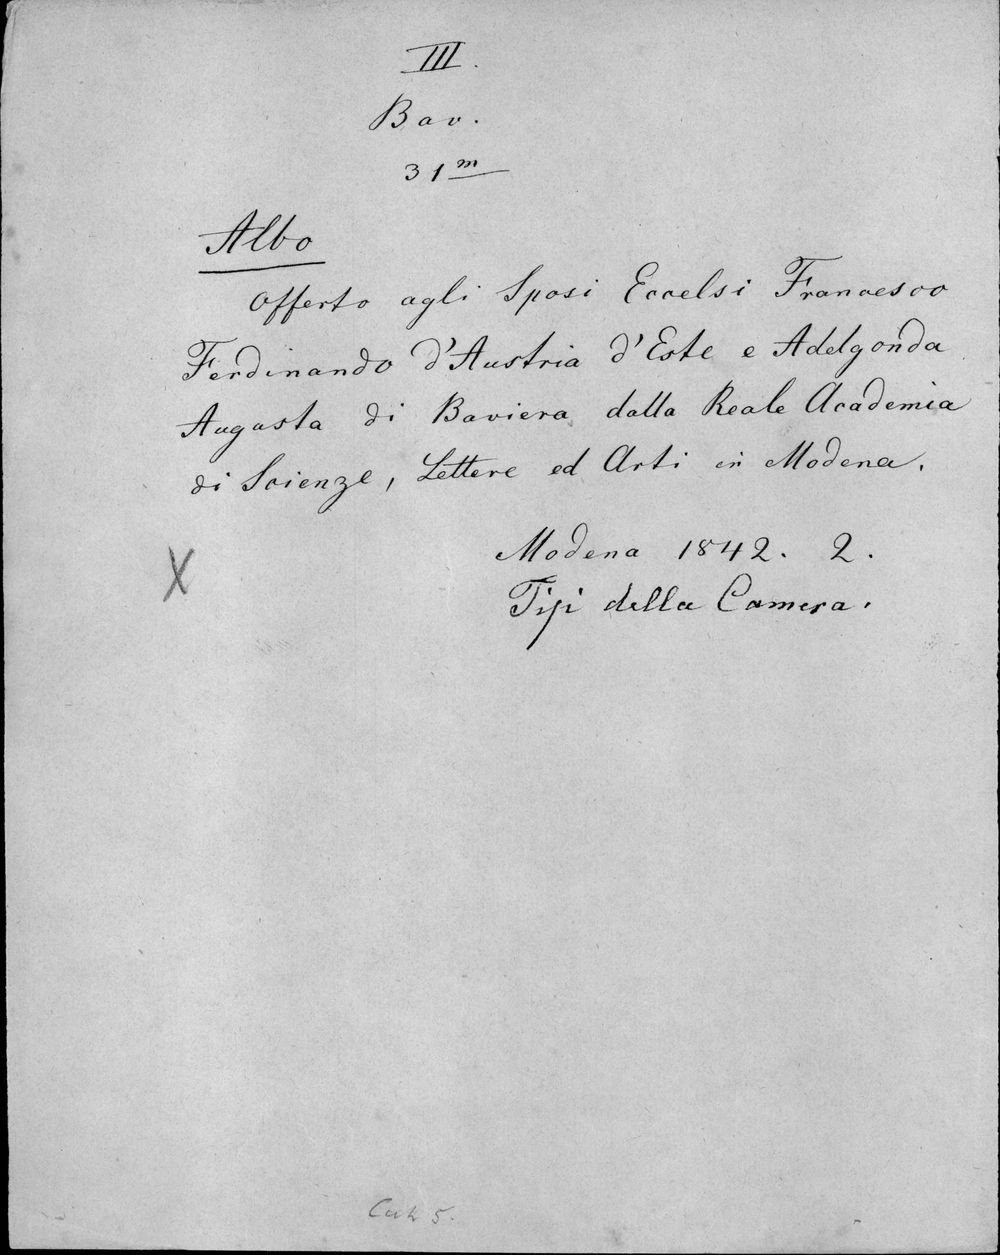 III.
Bav.
31 m
Albo
Offerto agli Sposi Eccelsi Francesco
Ferdinando d'Austria d'Este e Adelgonda
Augusta di Baviera dalla Reale Academia
di Scienze, Lettere ed Arti in Modena.
Modena 1842. 2.
Tipi della Camera.
X
5.